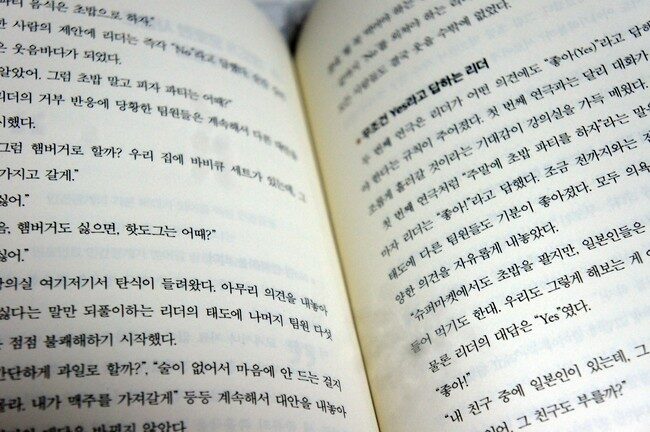 파티 음식은 초밥으로 하자."
한 사람의 제안에 리더는 즉자 "No"라고 답했다.
은 웃음바다가 되었다.
알았어. 그럼 초밥 말고 피자 파티는 어때?"
리더의 거부 반응에 당황한 팀원들은 계속해서 다른 대안을
시했다.
그럼 햄버거로 할까? 우리 집에 바비큐 세트가 있는데, 그
가지고 갈게."
싫어."
음, 햄버거도 싫으면, 핫도그는 어때?"
싫어."
강의실 여기저기서 탄식이 들려왔다. 아무리 의견을 내놓아
싫다는 말만 되풀이하는 리더의 태도에 나머지 팀원 다섯
점점 불쾌해하기 시작했다.
간단하게 파일로 할까?", "술이 없어서 마음에 안 드는 걸지
몰라. 내가 맥주를 가져갈게" 등등 계속해서 대안을 내놓아
대답은 바뀌지 않았다.
'No'를 외쳐야 하는
사람들도 결국 웃을 수밖에 없었다.
무조건 Yes라고 답하는 리더
두 번째 연극은 리더가 어떤 의견에도 "좋아(Yes)"라고 답해
야 한다는 규칙이 주어졌다. 첫 번째 연극과는 달리 대화가
조롭게 흘러갈 것이라는 기대감이 강의실을 가득 메웠다.
첫 번째 연극처럼 "주말에 초밥 파티를 하자"라는 말은
마자 리더는 "좋아!"라고 답했다. 조금 전까지와는 정
태도에 다른 팀원들도 기분이 좋아졌다. 모두 의욕
양한 의견을 자유롭게 내놓았다.
"슈퍼마켓에서도 초밥을 팔지만, 일본인들은
들어 먹기도 한대. 우리도 그렇게 해보는 게 어
물론 리더의 대답은 "Yes"였다.
"좋아!"
"내 친구 중에 일본인이 있는데, 그
이어, 그 친구도 부를까?"